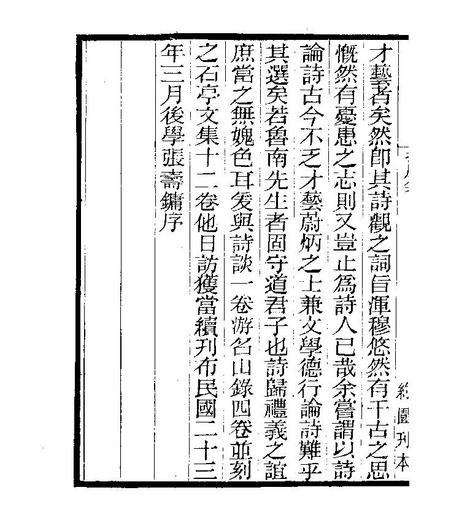 才藝者矣然卽其詩觀之詞旨渾穆悠然有千古之思
慨然有憂患之志則又豈止爲詩人已哉余嘗謂以詩
論詩古今不乏才藝蔚炳之上兼文學德行論詩難乎
其選矣若魯南先生者固守道君子也詩歸禮義之誼
庶當之無媿色耳爰與詩談一卷游名山錄四卷並刻
之石亭文集十二卷他日訪獲當續刊布民國二十三
年三月後學張壽鏞序
約園刊本